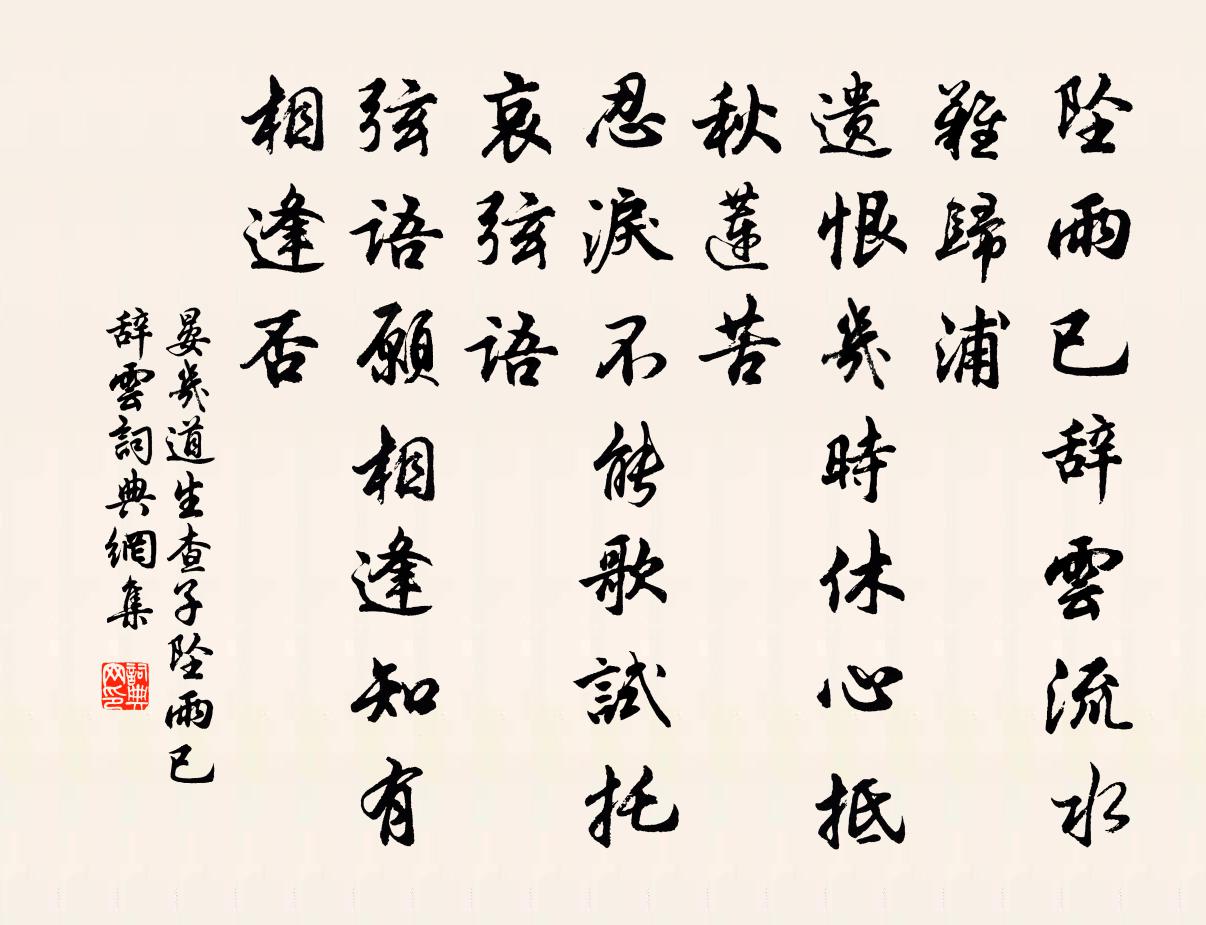 坠雨已辞雲流水
難歸浦
遗恨幾時休心抵
秋蓮苦
忍淚不能歌試托
哀弦語
弦語願相逢知有
相逢否
晏幾道生查子坠雨已
辞雲詞典網集
詞典网印